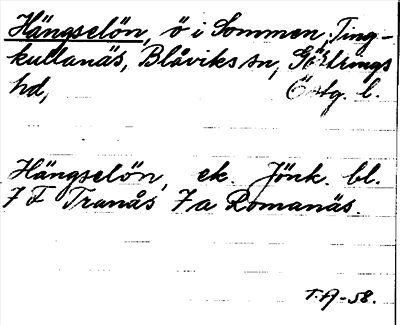 Hängselön, ö i Sommen, Ting-
kullanäs, Blåviks sn, Göstrings
hd, Östg. l.
Hängselön, ek. Jönk. bl.
7 F Tranås 7a Romanäs.
T.A-58.